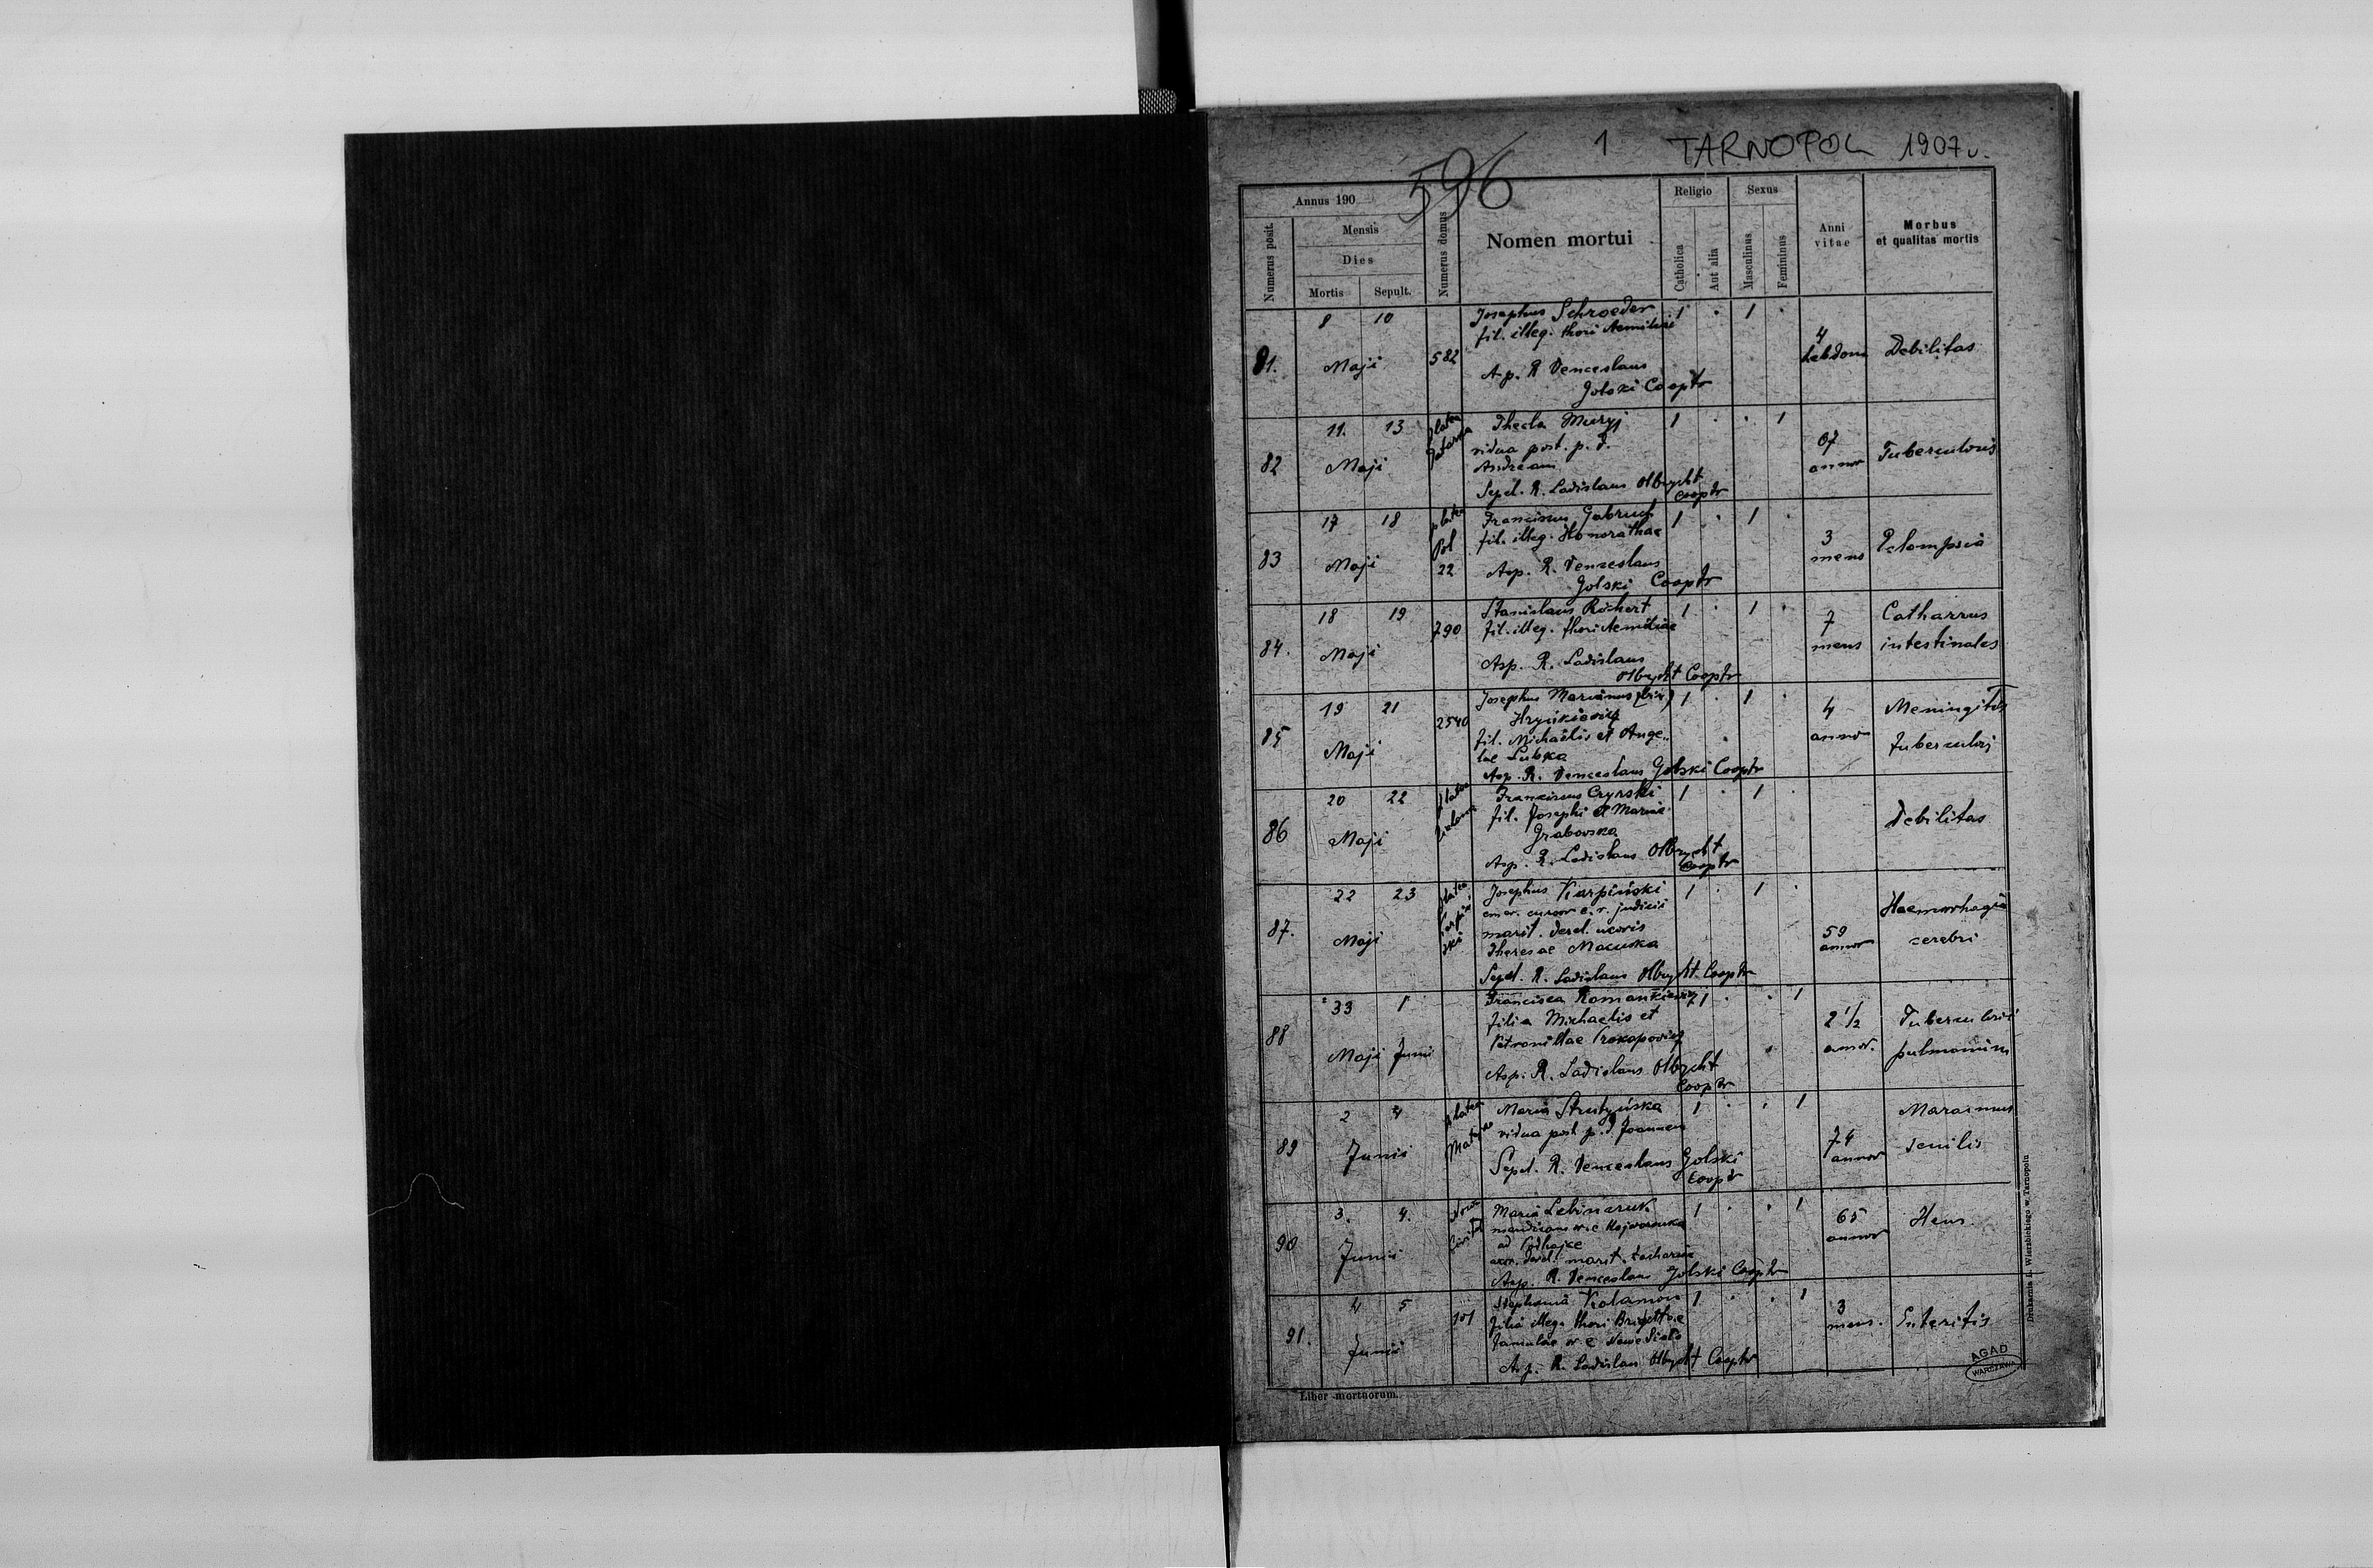 1 TARNOPOL 1907 r.
596
Annus 190
Numerus posit.
Mensis
Dies
Mortis
Sepult.
Numerus domus
Nomen mortui
Religio
Catholica
Aut alia
Sexus
Masculinus
Femininus
Anni vitae
Morbus
et qualitas mortis
8 10
Josephus Schroeder 1 . 1 .
fil. illeg. thori Aemiliae
81. Maji 582
4
hebdom Debilitas
A p. R Venceslaus
Golski Cooptr
11. 13 platea
Thecla Muryj 1 . . 1
vidua post. p. d.
82 Maji
Andream
annor Tuberculosis
Sepel. R. Ladislaus Olbrycht
Cooptr
17 18 platea
Franciscus 1 . 1 .
fil. illeg. Honorathae
83 Maji Pol 22
3
mens
Asp. R. Venceslaus
Golski Cooptr
18 19 790
Stanislaus Richert 1 . 1 .
fil. illeg. thori Aemiliae
84. Maji
7
mens
Catharrus
intestinales
Asp. R. Ladislaus
Olbrycht Cooptr
19 21 2540
Josephus Marianus (bin) 1 . 1 .
fil. Michaëlis et Ange..
lae Lubka
85 Maji
4
annor
Meningitis
tubercolos
Asp. R. Venceslaus Golski Cooptr
20 22 platea
Franciscus Czyrski 1 . 1 .
fil. Josephi et Mariae
Grabowska
86 Maji
Debilitas
Asp. R. Ladislaus Olbrycht
Cooptr
22 23 platea
Josephus Karpiński 1 . 1 .
emer. cursor c. r. judicii
marit. derel. uxoris
Theresae Macuska
87. Maji
59
annor
Haemorrhagia
cerebri
Sepel. R. Ladislaus Olbrycht Cooptr
33 1
Francisca Romankiewicz 1 . . 1
filia Michaelis et
Petronillae Prokopowicz
88 Maji Junii
2 1/2
annor.
Tuberculosis
pulmonum
Asp. R. Ladislaus Olbrycht
Cooptr
2 4 platea
Maria Strutyńska 1 . . 1
vidua post p. d. Joannem
89 Junii
74
annor
Marasmus
senilis
Sepel. R. Venceslaus Golski
Cooptr
3. 4.
Maria 1 . . 1
ad Podhajce
uxor. derel. marit. Zachariae
90 Junii
65
annor
Asp. R. Venceslaus Golski Cooptr
4 5 101
Stephania 1 . . 1
filia illeg. thori Brigittae
famulae or. e Nowe Sioło
91. Junii
3
mens. Enteritis
Asp. R. Ladislaus Olbrycht Cooptr
Liber mortuorum.
Drukarnia L. Wierzbickiego w Tarnopolu
AGAD
WARSZAWA